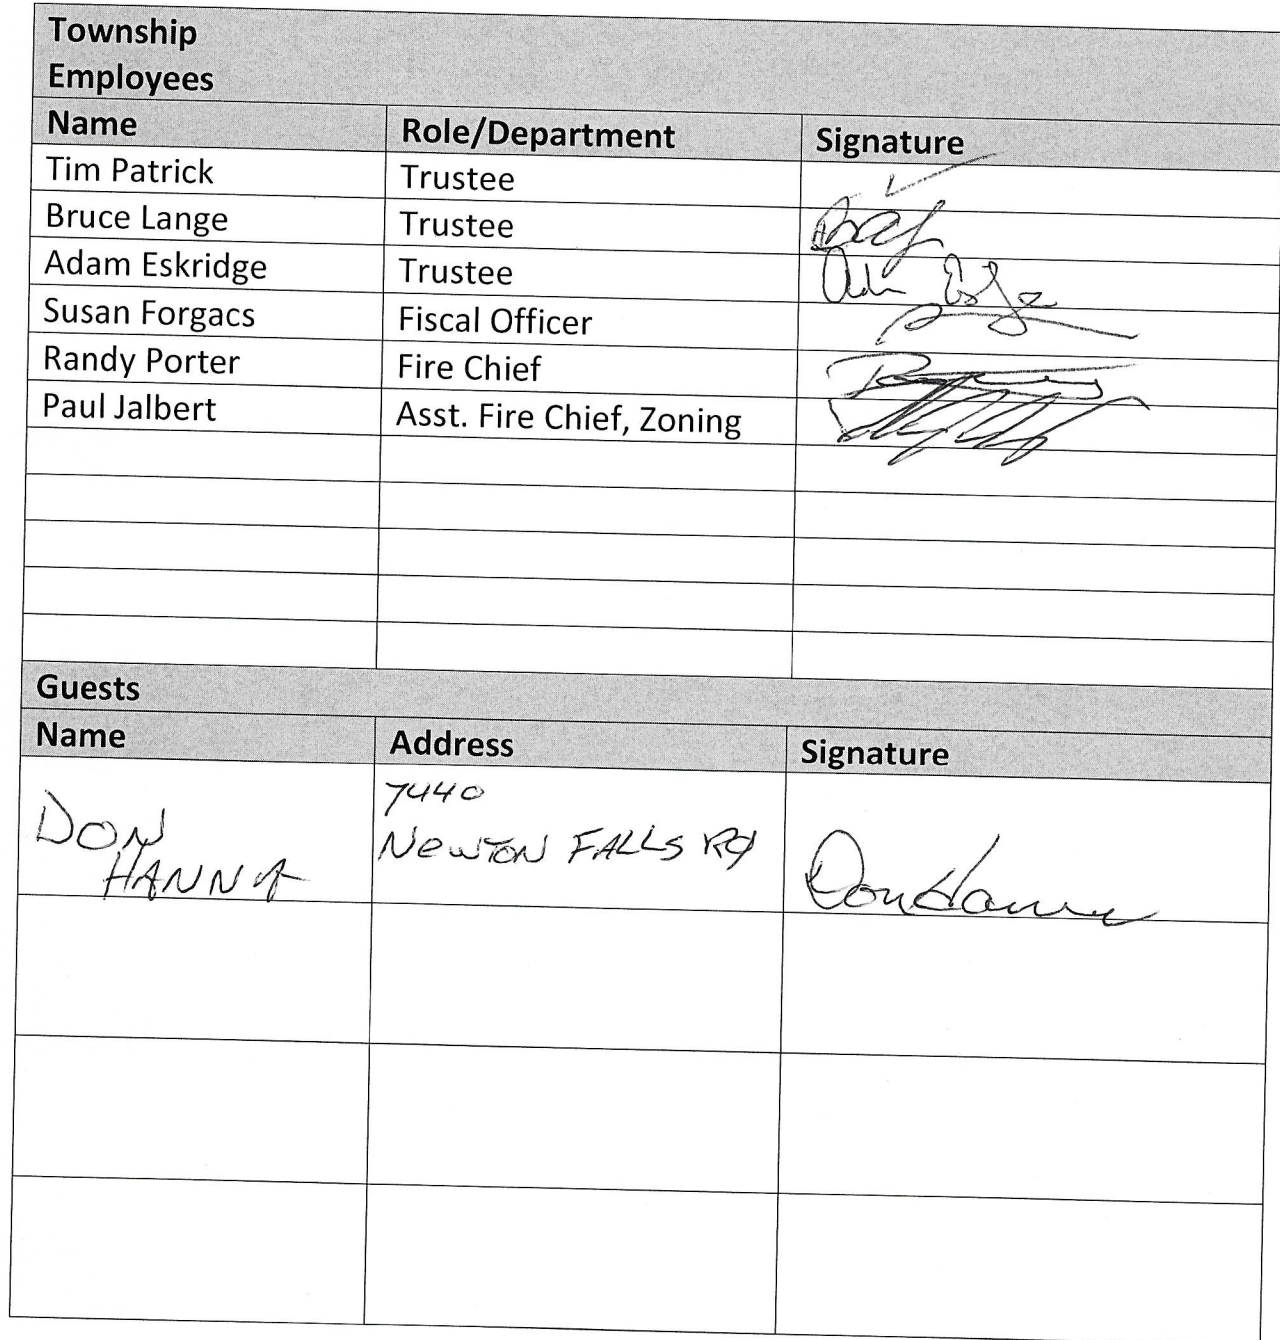 Township
Employees
Name Role/Department Signature
Tim Patrick Trustee ✓
Bruce Lange Trustee
Adam Eskridge Trustee
Susan Forgacs Fiscal Officer
Randy Porter Fire Chief
Paul Jalbert Asst. Fire Chief, Zoning
Guests
Name Address Signature
DON
HANNA
7440
NEWTON FALLS Rd
Don Hanna